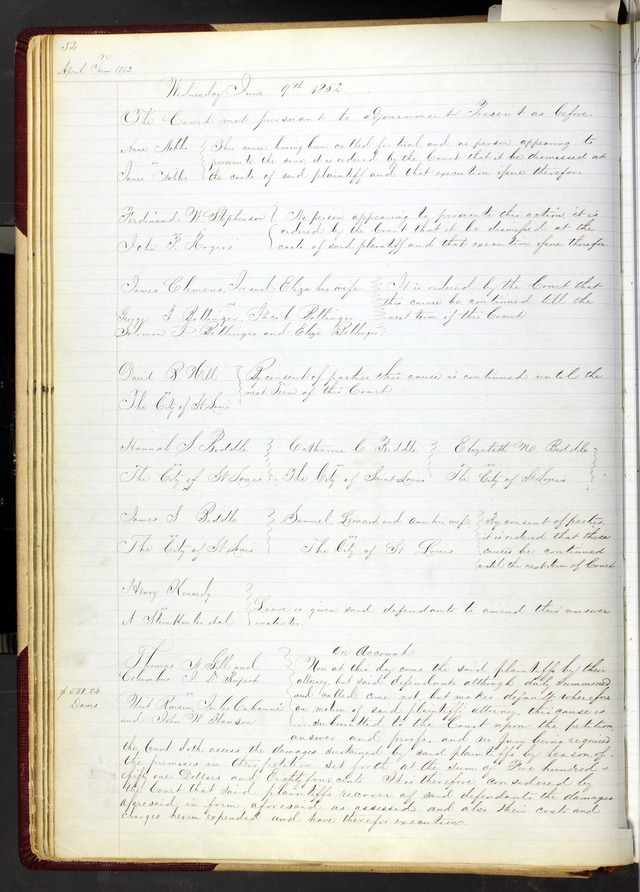 52
April Term 1852
Wednesday June 9th 1852
The Court met pursuant to adjournment Present as before
Anne Noble
vs
James Noble
This cause having been called for trial and no person appearing to
prosecute the same it is ordered by the Court that it be dismissed at
the costs of said plaintiff and that execution issue therefor.
Ferdinand W Stephenson
vs
John F Rogers
No person appearing to prosecute this action it is
ordered by the Court that it be dismissed at the
costs of said plaintiff and that execution issue therefor
James Clemens Jr and Eliza his wife
vs
George J Bollinger Jacob Bollinger
Solomon J Bollinger and Eliza Bollinger
It is ordered by the Court that
this cause be continued till the
next term of this Court
David B Hill
vs
The City of St Louis
By consent of parties this cause is continued until the
next Term of this Court
Hannah S Biddle
vs
The City of St Louis
Catharine C Biddle
vs
The City of Saint Louis
Elizabeth N. Biddle
vs
The City of St Louis
James S Biddle
vs
The City of St Louis
Samuel Lenard and Ann his wife
vs
The City of St Louis
By consent of parties
it is ordered that these
causes be continued
until the next term of Court
Henry Kennedy
vs
et al
Leave is given said defendants to amend their answer
instanter
Thomas A Gill and
Columbus
vs
and John W Hanson
$551.84
Dams
On Account
Now at this day come the said plaintiffs by their
attorney but said defendants although duly summoned
and called come not, but make default wherefore
on motion of said plaintiffs attorney this cause is
submitted to the Court upon the petition
answer and proofs and no jury being required
the Court doth assess the damages sustained by said plaintiffs by reason of
the premises in their petition set forth at the sum of Five hundred
fifty one Dollars and Eighty four cents. It is therefore considered by
the Court that said plaintiffs recover of said defendants the damages
aforesaid in form aforesaid as assessed and also their costs and
charges herein expended and have therefor execution